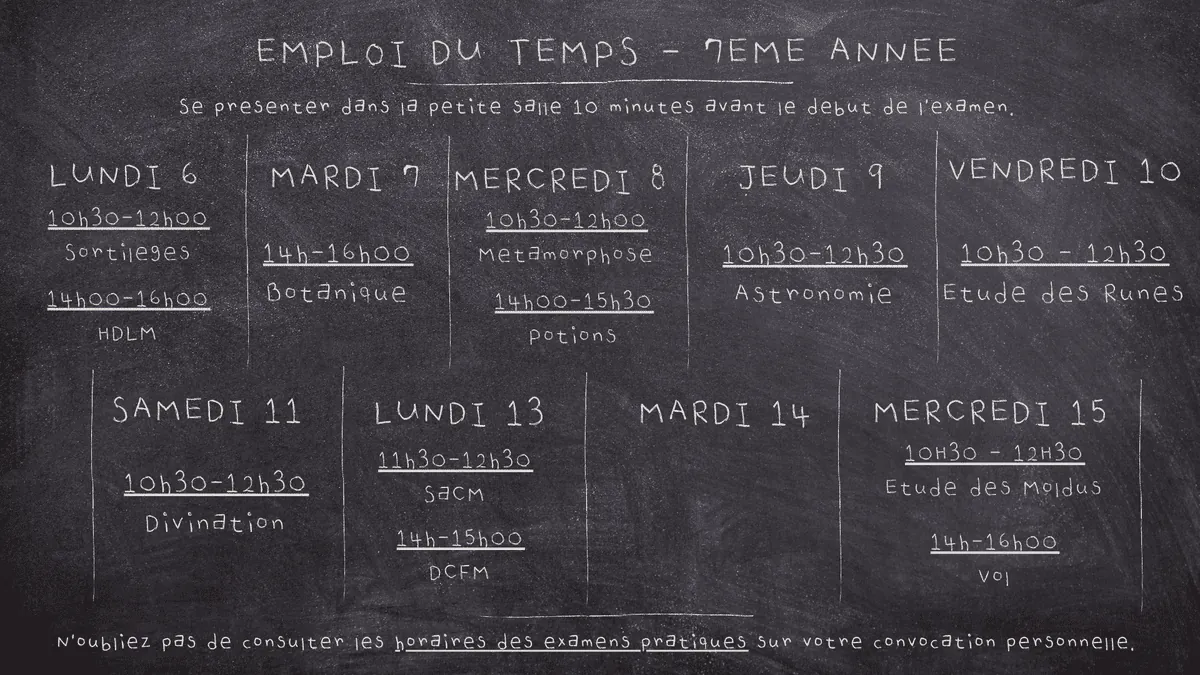 EMPLOI DU TEMPS - 7EME ANNEE
Se presenter dans la petite salle 10 minutes avant le debut de l'examen.
LUNDI 6
10h30-12h00
Sortileges
14h00-16h00
HDLM
MARDI 7
14h-16h00
Botanique
MERCREDI 8
10h30-12h00
Metamorphose
14h00-15h30
Potions
JEUDI 9
10h30-12h30
Astronomie
VENDREDI 10
10h30 - 12h30
Etude des Runes
SAMEDI 11
10h30-12h30
Divination
LUNDI 13
11h30-12h30
SACM
14h-15h00
DCFM
MARDI 14
MERCREDI 15
10H30 - 12H30
Etude des Moldus
14h-16h00
Vol
N'oubliez pas de consulter les horaires des examens pratiques sur votre convocation personnelle.